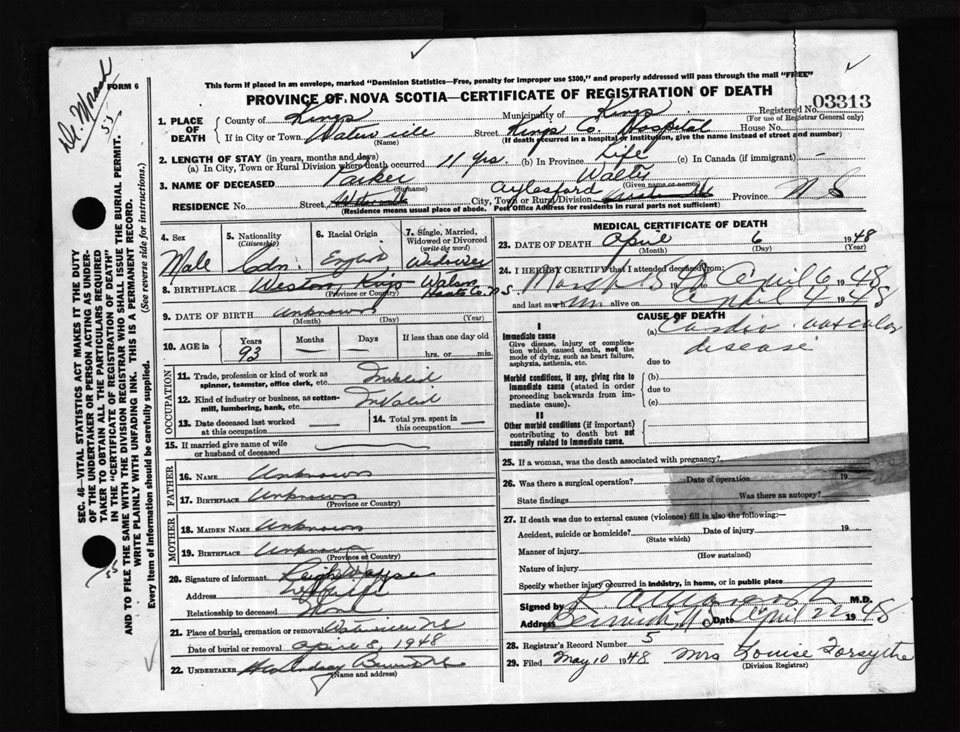 Dr. Marsh
53
FORM 6
This form if placed in an envelope, marked "Dominion Statistics—Free, penalty for improper use $300," and properly addressed will pass through the mail "FREE"
PROVINCE OF NOVA SCOTIA—CERTIFICATE OF REGISTRATION OF DEATH
1. PLACE OF DEATH County of Kings Municipality of Kings Registered No. 03313
(For use of Registrar General only)
If in City or Town Waterville Street Kings Co. Hospital House No.
(Name) (If death occurred in a hospital or institution, give the name instead of street and number)
2. LENGTH OF STAY (in years, months and days)
(a) In City, Town or Rural Division where death occurred 11 yrs. (b) In Province Life (c) In Canada (if immigrant) —
3. NAME OF DECEASED Parker Walter
(Surname) (Given name or names)
RESIDENCE No. Street City, Town or Rural Division Aylesford Province N S
(Residence means usual place of abode. Post Office Address for residents in rural parts not sufficient)
SEC. 46—VITAL STATISTICS ACT MAKES IT THE DUTY OF THE UNDERTAKER OR PERSON ACTING AS UNDERTAKER TO OBTAIN ALL THE PARTICULARS REQUIRED IN THE "CERTIFICATE OF REGISTRATION OF DEATH" AND TO FILE THE SAME WITH THE DIVISION REGISTRAR WHO SHALL ISSUE THE BURIAL PERMIT.
WRITE PLAINLY WITH UNFADING INK. THIS IS A PERMANENT RECORD.
Every item of information should be carefully supplied. (See reverse side for instructions.)
55
4. Sex Male
5. Nationality (Citizenship) Cdn.
6. Racial Origin English
7. Single, Married, Widowed or Divorced (write the word) Widower
8. BIRTHPLACE Weston, Kings Hants Co. N.S
(Province or Country)
9. DATE OF BIRTH Unknown
(Month) (Day) (Year)
10. AGE in Years 93 Months — Days — If less than one day old
hrs. or min.
OCCUPATION
11. Trade, profession or kind of work as spinner, teamster, office clerk, etc. Invalid
12. Kind of industry or business, as cotton-mill, lumbering, bank, etc. Invalid
13. Date deceased last worked at this occupation
14. Total yrs. spent in this occupation
15. If married give name of wife or husband of deceased
FATHER
16. NAME Unknown
17. BIRTHPLACE Unknown
(Province or Country)
MOTHER
18. MAIDEN NAME Unknown
19. BIRTHPLACE Unknown
(Province or Country)
20. Signature of informant
Address
Relationship to deceased None
21. Place of burial, cremation or removal Waterville N S
Date of burial or removal April 8, 1948
22. UNDERTAKER
(Name and address)
MEDICAL CERTIFICATE OF DEATH
23. DATE OF DEATH April 6 1948
(Month) (Day)
24. I HEREBY CERTIFY that I attended deceased from:
March April 6 1948
and last saw him alive on April 4 1948
CAUSE OF DEATH
I
Immediate cause
Give disease, injury or complication which caused death, not the mode of dying, such as heart failure, asphyxia, asthenia, etc.
(a) Cardio vascular disease
due to
Morbid conditions, if any, giving rise to immediate cause (stated in order proceeding backwards from immediate cause).
(b)
due to
(c)
II
Other morbid conditions (if important) contributing to death but not causally related to immediate cause.
25. If a woman, was the death associated with pregnancy?
26. Was there a surgical operation? Date of operation 19
State findings Was there an autopsy?
27. If death was due to external causes (violence) fill in also the following:—
Accident, suicide or homicide? Date of injury 19
(State which)
Manner of injury
(How sustained)
Nature of injury
Specify whether injury occurred in industry, in home, or in public place
Signed by M.D.
Address Berwick, N.S. Date April 22 1948
28. Registrar's Record Number 5
29. Filed May 10 1948 Mrs Louise Forsythe
(Division Registrar)